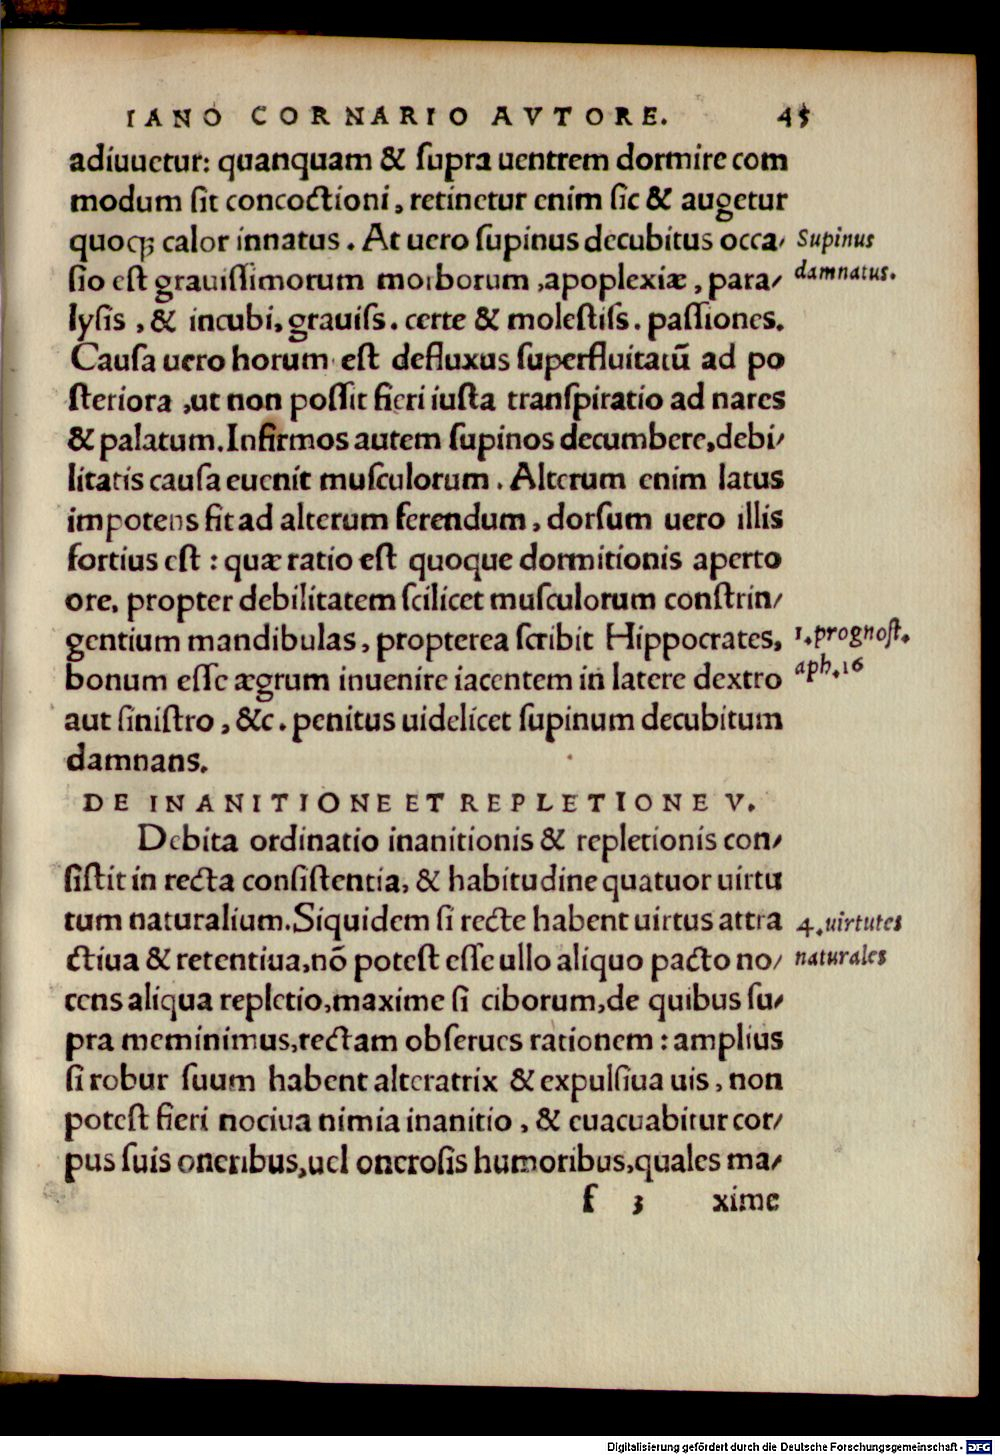 IANO CORNARIO AVTORE. 45
adiuuetur: quanquam & ſupra uentrem dormire com
modum ſit concoctioni, retinetur enim ſic & augetur
quoq; calor innatus. At uero ſupinus decubitus occa/
ſio est grauiſſimorum morborum, apoplexiæ, para/
lyſis, & incubi, grauiſs. certe & moleſtiſs. paſſiones.
Cauſa uero horum est defluxus ſuperfluitatũ ad po
ſteriora, ut non poſſit fieri iuſta tranſpiratio ad nares
& palatum. Infirmos autem ſupinos decumbere, debi/
litatis cauſa euenit muſculorum. Alterum enim latus
impotens fit ad alterum ferendum, dorſum uero illis
fortius eſt: quæ ratio eſt quoque dormitionis aperto
ore, propter debilitatem ſcilicet muſculorum conſtrin/
gentium mandibulas, propterea ſcribit Hippocrates,
bonum eſſe ægrum inuenire iacentem in latere dextro
aut ſiniſtro, &c. penitus uidelicet ſupinum decubitum
damnans.
Supinus
damnatus.
1. prognoſt.
aph. 16
DE INANITIONE ET REPLETIONE V.
Debita ordinatio inanitionis & repletionis con/
ſiſtit in recta conſiſtentia, & habitudine quatuor uirtu
tum naturalium. Siquidem ſi recte habent uirtus attra
ctiua & retentiua, nõ poteſt eſſe ullo aliquo pacto no/
cens aliqua repletio, maxime ſi ciborum, de quibus ſu/
pra meminimus, rectam obſerues rationem: amplius
ſi robur ſuum habent alteratrix & expulſiua uis, non
poteſt fieri nociua nimia inanitio, & euacuabitur cor/
pus ſuis oneribus, uel oneroſis humoribus, quales ma/
4. uirtutes
naturales
f 3 xime
Digitalisierung gefördert durch die Deutsche Forschungsgemeinschaft - DFG